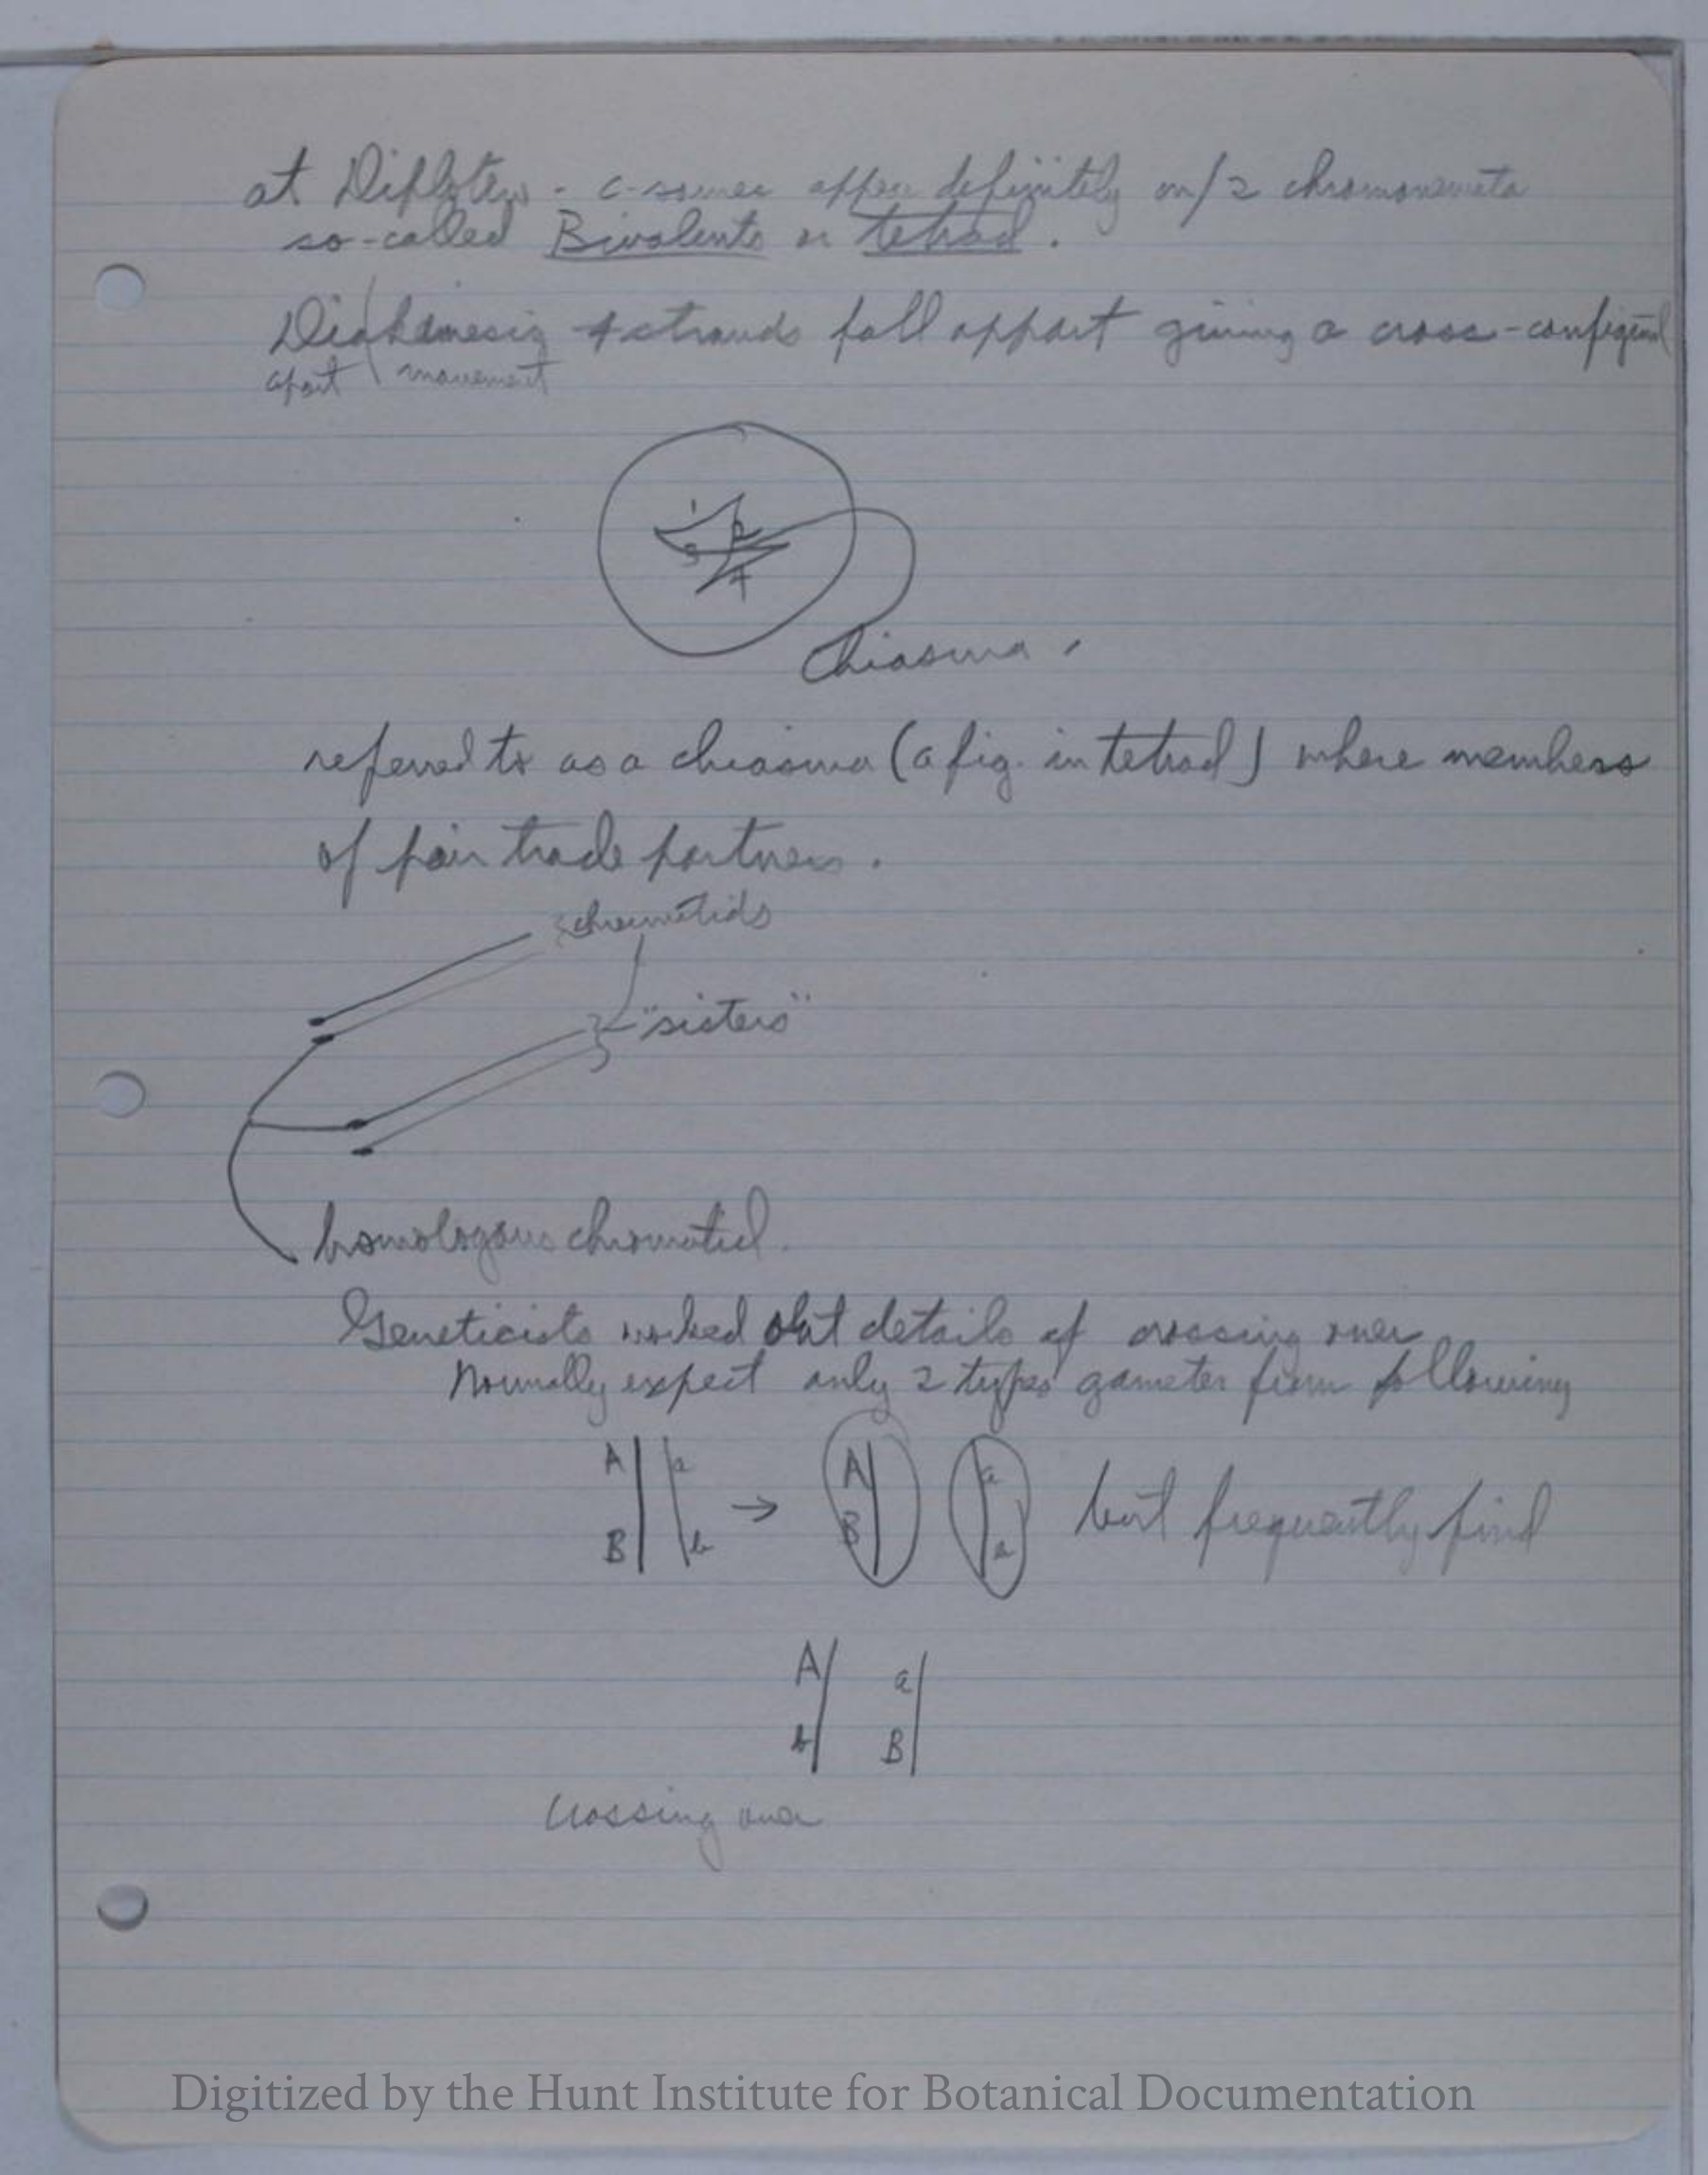 at Diplotene - c-somes appear definitely w/ 2 chromonemata
so-called Bivalents or tetrad.
Dia/kenesis 4 strands fall appart giving a cross-configurat
apart movement
1
2
3
4
Chiasma.
referred to as a chiasma (a fig. in tetrad) where members
of pair trade partners.
chromatids
"sisters"
homologous chromatid.
Geneticists worked out details of crossing over
Normally expect only 2 types gametes from following
A a → A a but frequently find
B b B a
A a
b B
Crossing over
Digitized by the Hunt Institute for Botanical Documentation